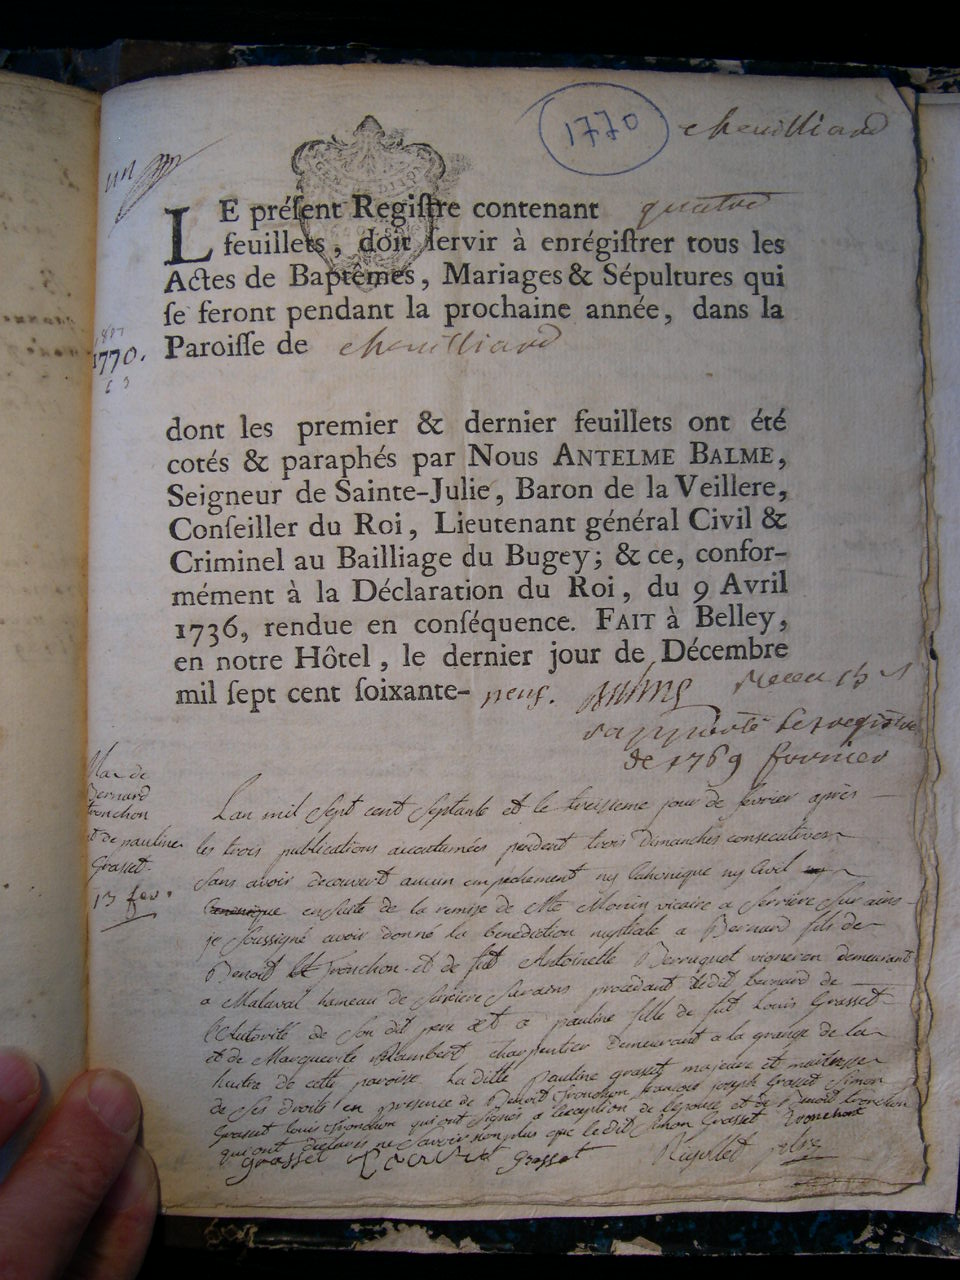 1770
cheuilliard
un
LE préſent Regiſtre contenant quatre
feuillets, doit ſervir à enrégiſtrer tous les
Actes de Baptêmes, Mariages & Sépultures qui
ſe feront pendant la prochaine année, dans la
1770. Paroiſſe de cheuilliard
dont les premier & dernier feuillets ont été
cotés & paraphés par Nous ANTELME BALME,
Seigneur de Sainte-Julie, Baron de la Veillere,
Conſeiller du Roi, Lieutenant général Civil &
Criminel au Bailliage du Bugey; & ce, confor-
mément à la Déclaration du Roi, du 9 Avril
1736, rendue en conſéquence. FAIT à Belley,
en notre Hôtel, le dernier jour de Décembre
mil ſept cent ſoixante- neuf.
rapporté le regiſtre
de 1769 fournier
Mar de
Bernard
tronchon
et de pauline
Grasset
13 fev.
Lan mil Sept cent Septante et le treisieme jour de fevrier après
les trois publications accoutumées pendent trois Dimanches consecutives
Sans avoir decouvert aucun empechement ny Canonique ny Civil
ensuite de la remise de Mre Monin vicaire a Serriere Sur ains
je Soussigné avoir donné la benediction nuptiale a Bernard fils de
Benoit Tronchon et de fut Antoinette Perruquet vigneron demeurant
a Malaval hameau de Serriere Sur ains procedant ledit bernard de
l'Autorité de Son dit pere et a pauline fille de fut Louis Grasset
et de Marguerite Alambert charpentier Demeurant a la grange de la
de cette paroisse. La ditte pauline grasset majeure et maitresse
de Ses droits en presence de Benoit Tronchon francois joseph Grasset Simon
Grasset Louis Tronchon qui ont Signés a l'exception de l'epouse et de Benoit tronchon
qui ont declarés ne Savoir non plus que le dit Simon Grasset Tronchon
grasset Grasset